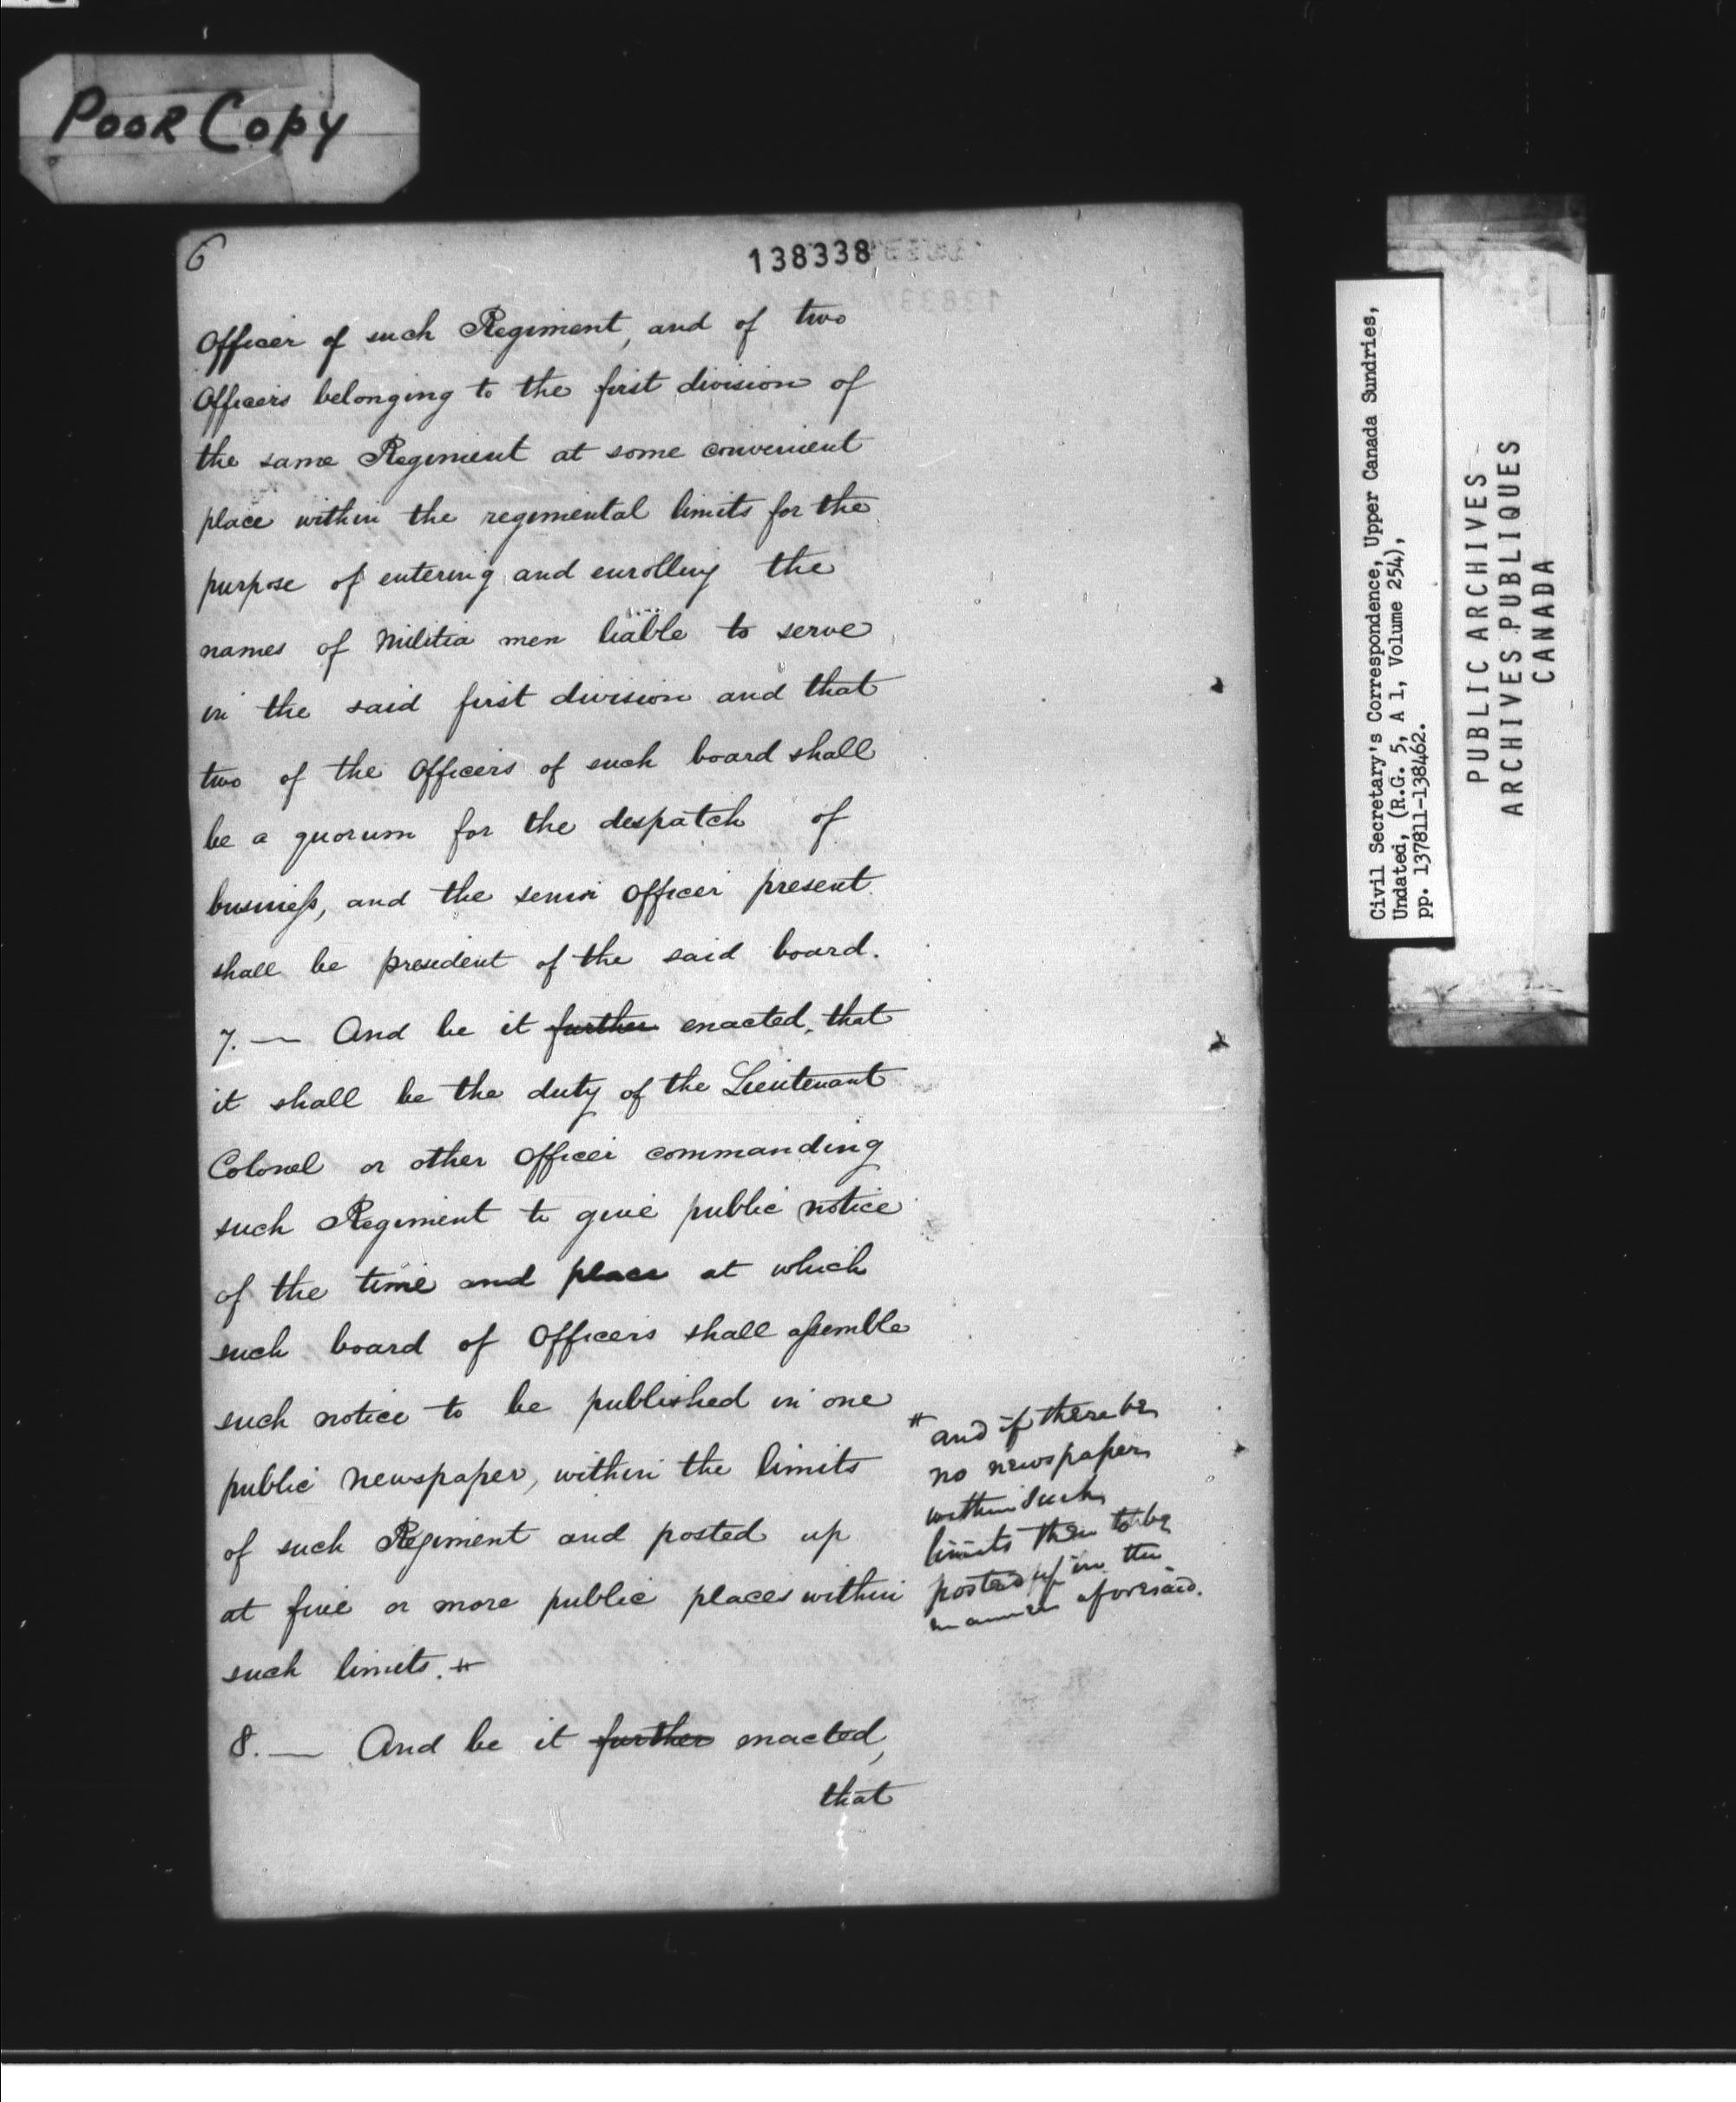 Poor Copy
6
138338
Officer of such Regiment, and of two
Officers belonging to the first division of
the same Regiment at some convenient
place within the regimental limits for the
purpose of entering and enrolling the
names of Militia men liable to serve
in the said first division and that
two of the Officers of such board shall
be a quorum for the despatch of
business, and the senior Officer present
shall be president of the said board.
7. — And be it further enacted, that
it shall be the duty of the Lieutenant
Colonel or other Officer commanding
such Regiment to give public notice
of the time and place at which
such board of Officers shall assemble
such notice to be published in one
public Newspaper, within the limits
of such Regiment and posted up
at five or more public places within
such limits. #
# and if there be
no newspaper
within such
limits then to be
posted up in the
manner aforesaid.
8. — And be it further enacted,
that
Civil Secretary's Correspondence, Upper Canada Sundries,
Undated, (R.G. 5, A 1, Volume 254),
pp. 137811-138462.
PUBLIC ARCHIVES
ARCHIVES PUBLIQUES
CANADA